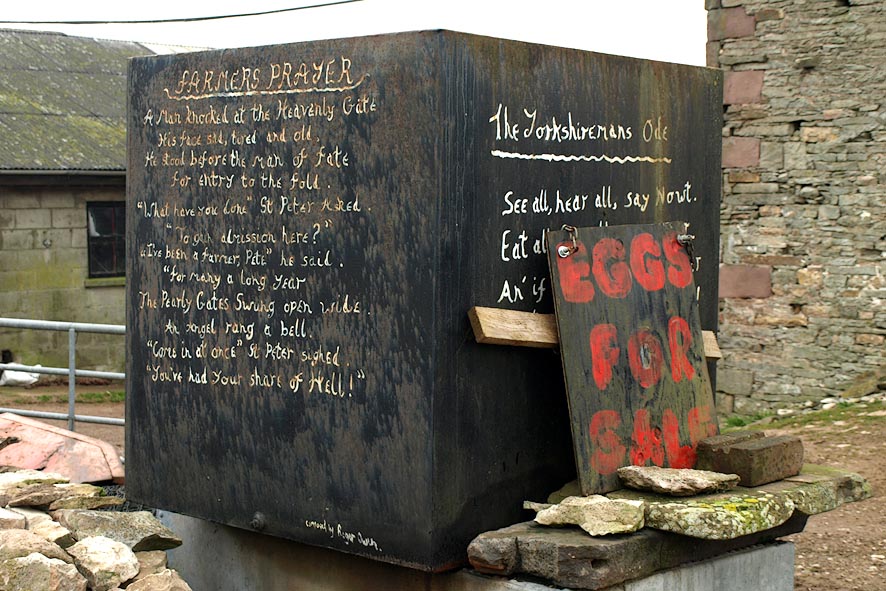 FARMERS PRAYER
A Man Knocked at the Heavenly Gate
His face sad, tired and old,
He stood before the man of fate
for entry to the fold.
"What have you done" St Peter Asked.
"To gain admission here?"
"I've been a farmer, Pete" he said.
"for many a long year
The Pearly Gates Swung open wide.
An angel rang a bell.
"Come in at once" St Peter sighed.
"You've had your share of Hell!"
composed by Roger
The Yorkshiremans Ode
See all, hear all, say Nowt.
Eat al
An' if
EGGS
FOR
SALE